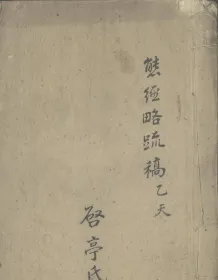 熊经略疏稿乙天
啓亭氏